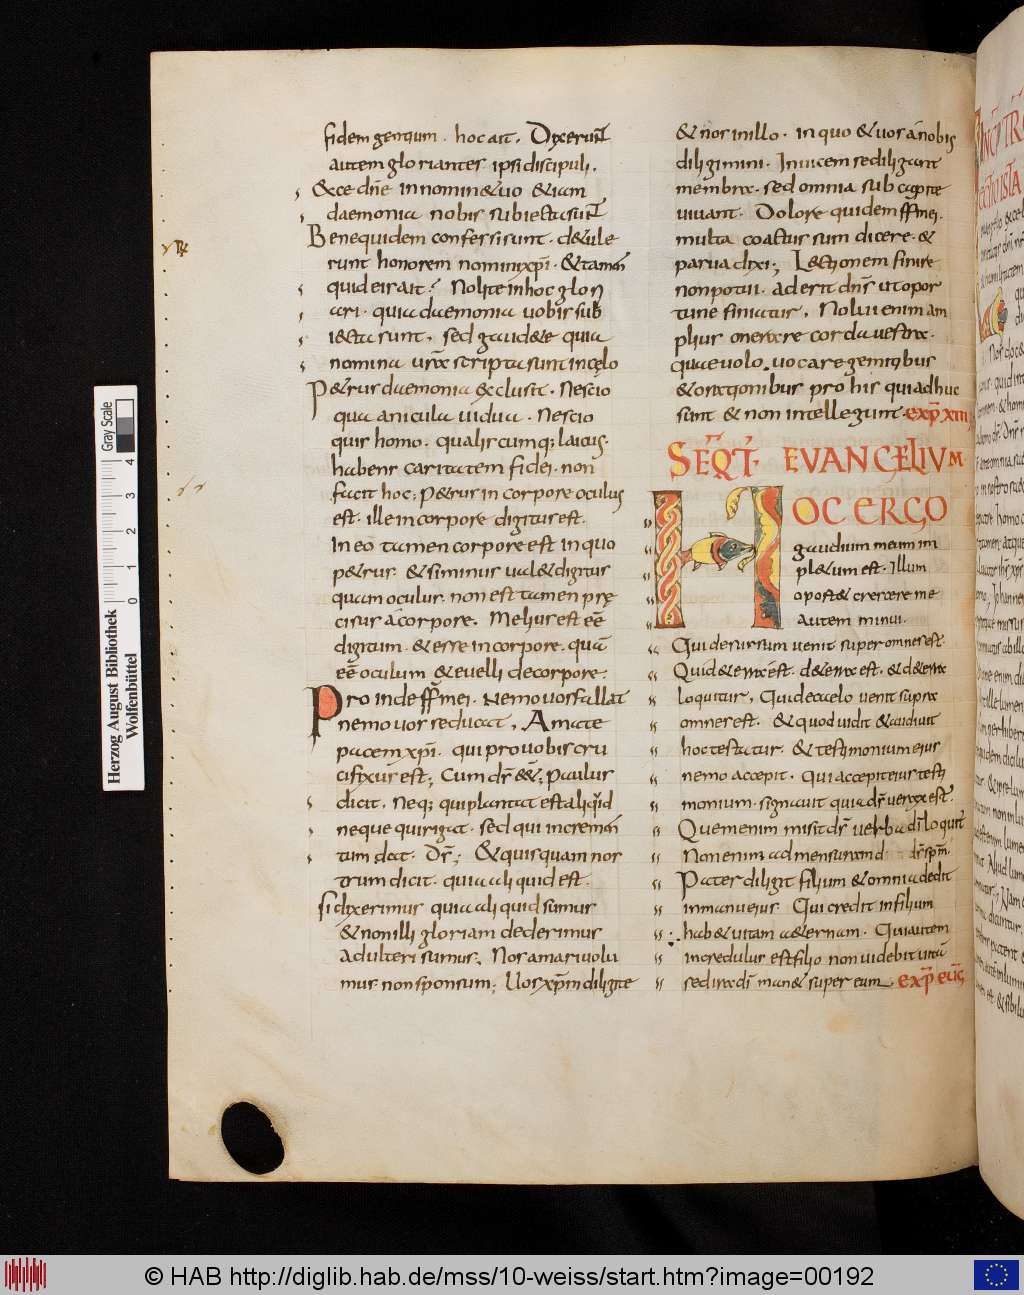 fidem gentium. hoc ait. Dixerunt
autem gloriantes ipsi discipuli.
Ecce dn̄e in nomine tuo &iam
daemonia nobis subiecta sunt
Benequidem confessi sunt. d&ule
runt honorem nomini xp̄i. & tamen
quid eis ait? Nolite in hoc glori
ari. quia daemonia uobis sub
iecta sunt. sed gaud&e quia
nomina ur̄a scripta sunt in cęlo
P&rus daemonia &clusit. Nescio
qua anicula uidua. Nescio
quis homo. qualiscumq; laicus.
habens caritatem fidei. non
facit hoc; P&rus in corpore oculus
est. ille in corpore digitus est.
In eo tamen corpore est in quo
p&rus. & si minus ual& digitus
quam oculus. non est tamen prę
cisus á corpore. Melius est eē
digitum. & esse in corpore. quā
eē oculum & euelli de corpore.
Proinde ff̄ mei. Nemo uos fallat
nemo uos seducat. Amate
pacem xp̄i. qui pro uobis cru
cifixus est; Cum dr̄ &&; Paulus
dicit. Neq; qui plantat est aliquid
neque qui rigat. sed qui incremen
tum dat. Dr̄; & quisquam nos
trum dicit. quia aliquid est.
si dixerimus quia aliquid sumus
& non illi gloriam dederimus
adulteri sumus. Nos amari uolu
mus non sponsum; Uos xp̄m diligite
& nos in illo. in quo & uos á nobis
diligimini. Inuicem se diligant
membra. sed omnia sub capite
uiuant. Dolore quidem ff̄ mei.
multa coactus sum dicere. &
parua dixi; Lectionem finire
non potui. aderit dn̄s ut opor
tune finiatur. Nolui enim am
plius onerare corda uestra.
quae uolo uocare gemitibus
& orationibus pro his qui adhuc
sunt & non intellegunt. exp̄ xiii
SEQT̄. EVANGELIVM
HOC ERGO
gaudium meum im
pl&um est. Illum
oport& crescere me
autem minui.
Qui desursum uenit super omnes est.
Qui d& erra est. d& erra est. & d& erra
loquitur. Qui de caelo uenit supra
omnes est. & quod uidit & audiuit
hoc testatur. & testimonium eius
nemo accepit. Qui accepit eius testi
monium. signauit quia dr̄ uerax est.
Quem enim misit dr̄ uerba di loquitur
Non enim ad mensuram d dr̄ spm̄.
Pater diligit filium & omnia dedit
in manu eius. Qui credit in filium
hab& uitam a&ernam. Qui autem
incredulus est filio non uidebit uitā
sed ira dī man& super eum. exp̄ euḡ
Herzog August Bibliothek
Wolfenbüttel
0 1 2 3 4
Gray Scale
© HAB http://diglib.hab.de/mss/10-weiss/start.htm?image=00192